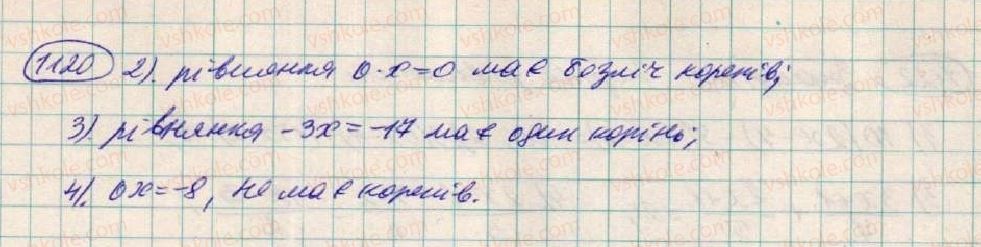 1120 2). рівняння 0·x=0 має безліч коренів;
3) рівняння -3x=-17 має один корінь;
4). 0x=-8, не має коренів.